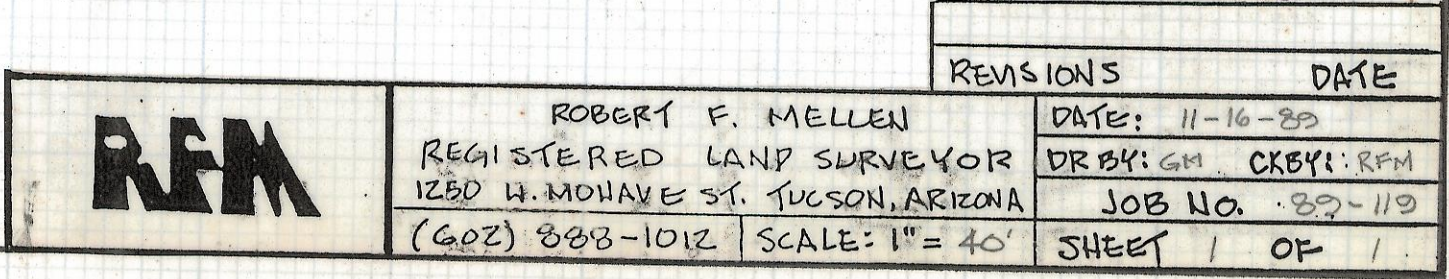 REVISIONS DATE
RFM
ROBERT F. MELLEN
REGISTERED LAND SURVEYOR
1250 W. MOHAVE ST. TUCSON, ARIZONA
(602) 888-1012 SCALE: 1" = 40'
DATE: 11-16-89
DR BY: GM CKBY: RFM
JOB NO. 89-119
SHEET 1 OF 1